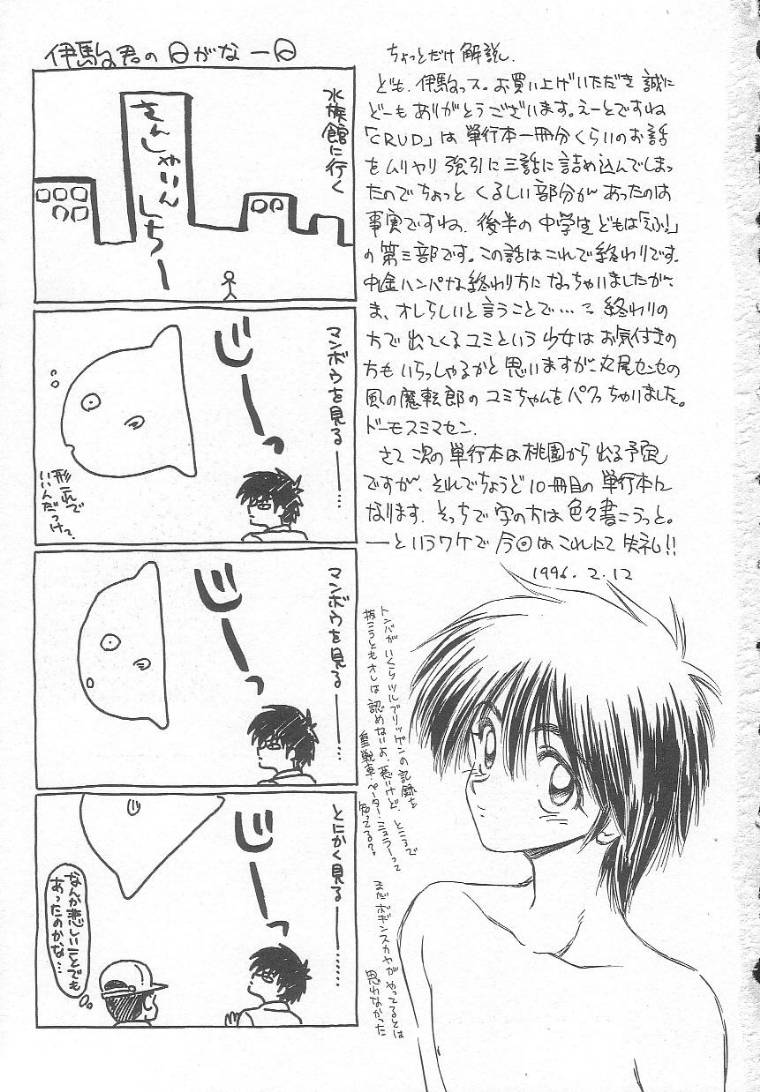 ちょっとだけ解説.
ども.伊駒っス.お買い上げいただき誠に
どーもありがとうございます。えーとですね
「CRUD」は単行本一冊分くらいのお話
をムリヤリ強引に三話に詰め込んでしまっ
たのでちょっとくるしい部分があったのは
事実ですね.後半の中学生どもは「えふ!」
の第三部です。この話はこれで終わりです.
中途ハンパな終わり方になっちゃいましたが、
ま、オレらしいと言うことで…で終わりの
方で出てくるユミという少女はお気付きの
方もいらっしゃるかと思いますが、丸尾センセの
風の魔転郎のユミちゃんをパクっちゃいました。
ドーモスミマセン.
さて次の単行本は桃園から出る予定
ですが、それでちょうど10冊目の単行本に
なります.そっちで字の方は色々書こうっと。
―というワケで今回はこれにて失礼!!
1996.2.12
伊駒君の日がな一日
水族館に行く
さんしゃいんしちー
マンボウを見る――…
じーーっ
形これで
いいんだっけ?
マンボウを見る――…
じーーっ
とにかく見る――……
じーーっ
なんか悲しいことでも
あったのかな…
トンバがいくらツルブリッゲンの記録を
抜こうともオレは認めないよ.悪いけど.ところで
重戦車.ペーター.ミュラーって
知ってる?
まだボギンスカヤがやってるとは
思わなかった